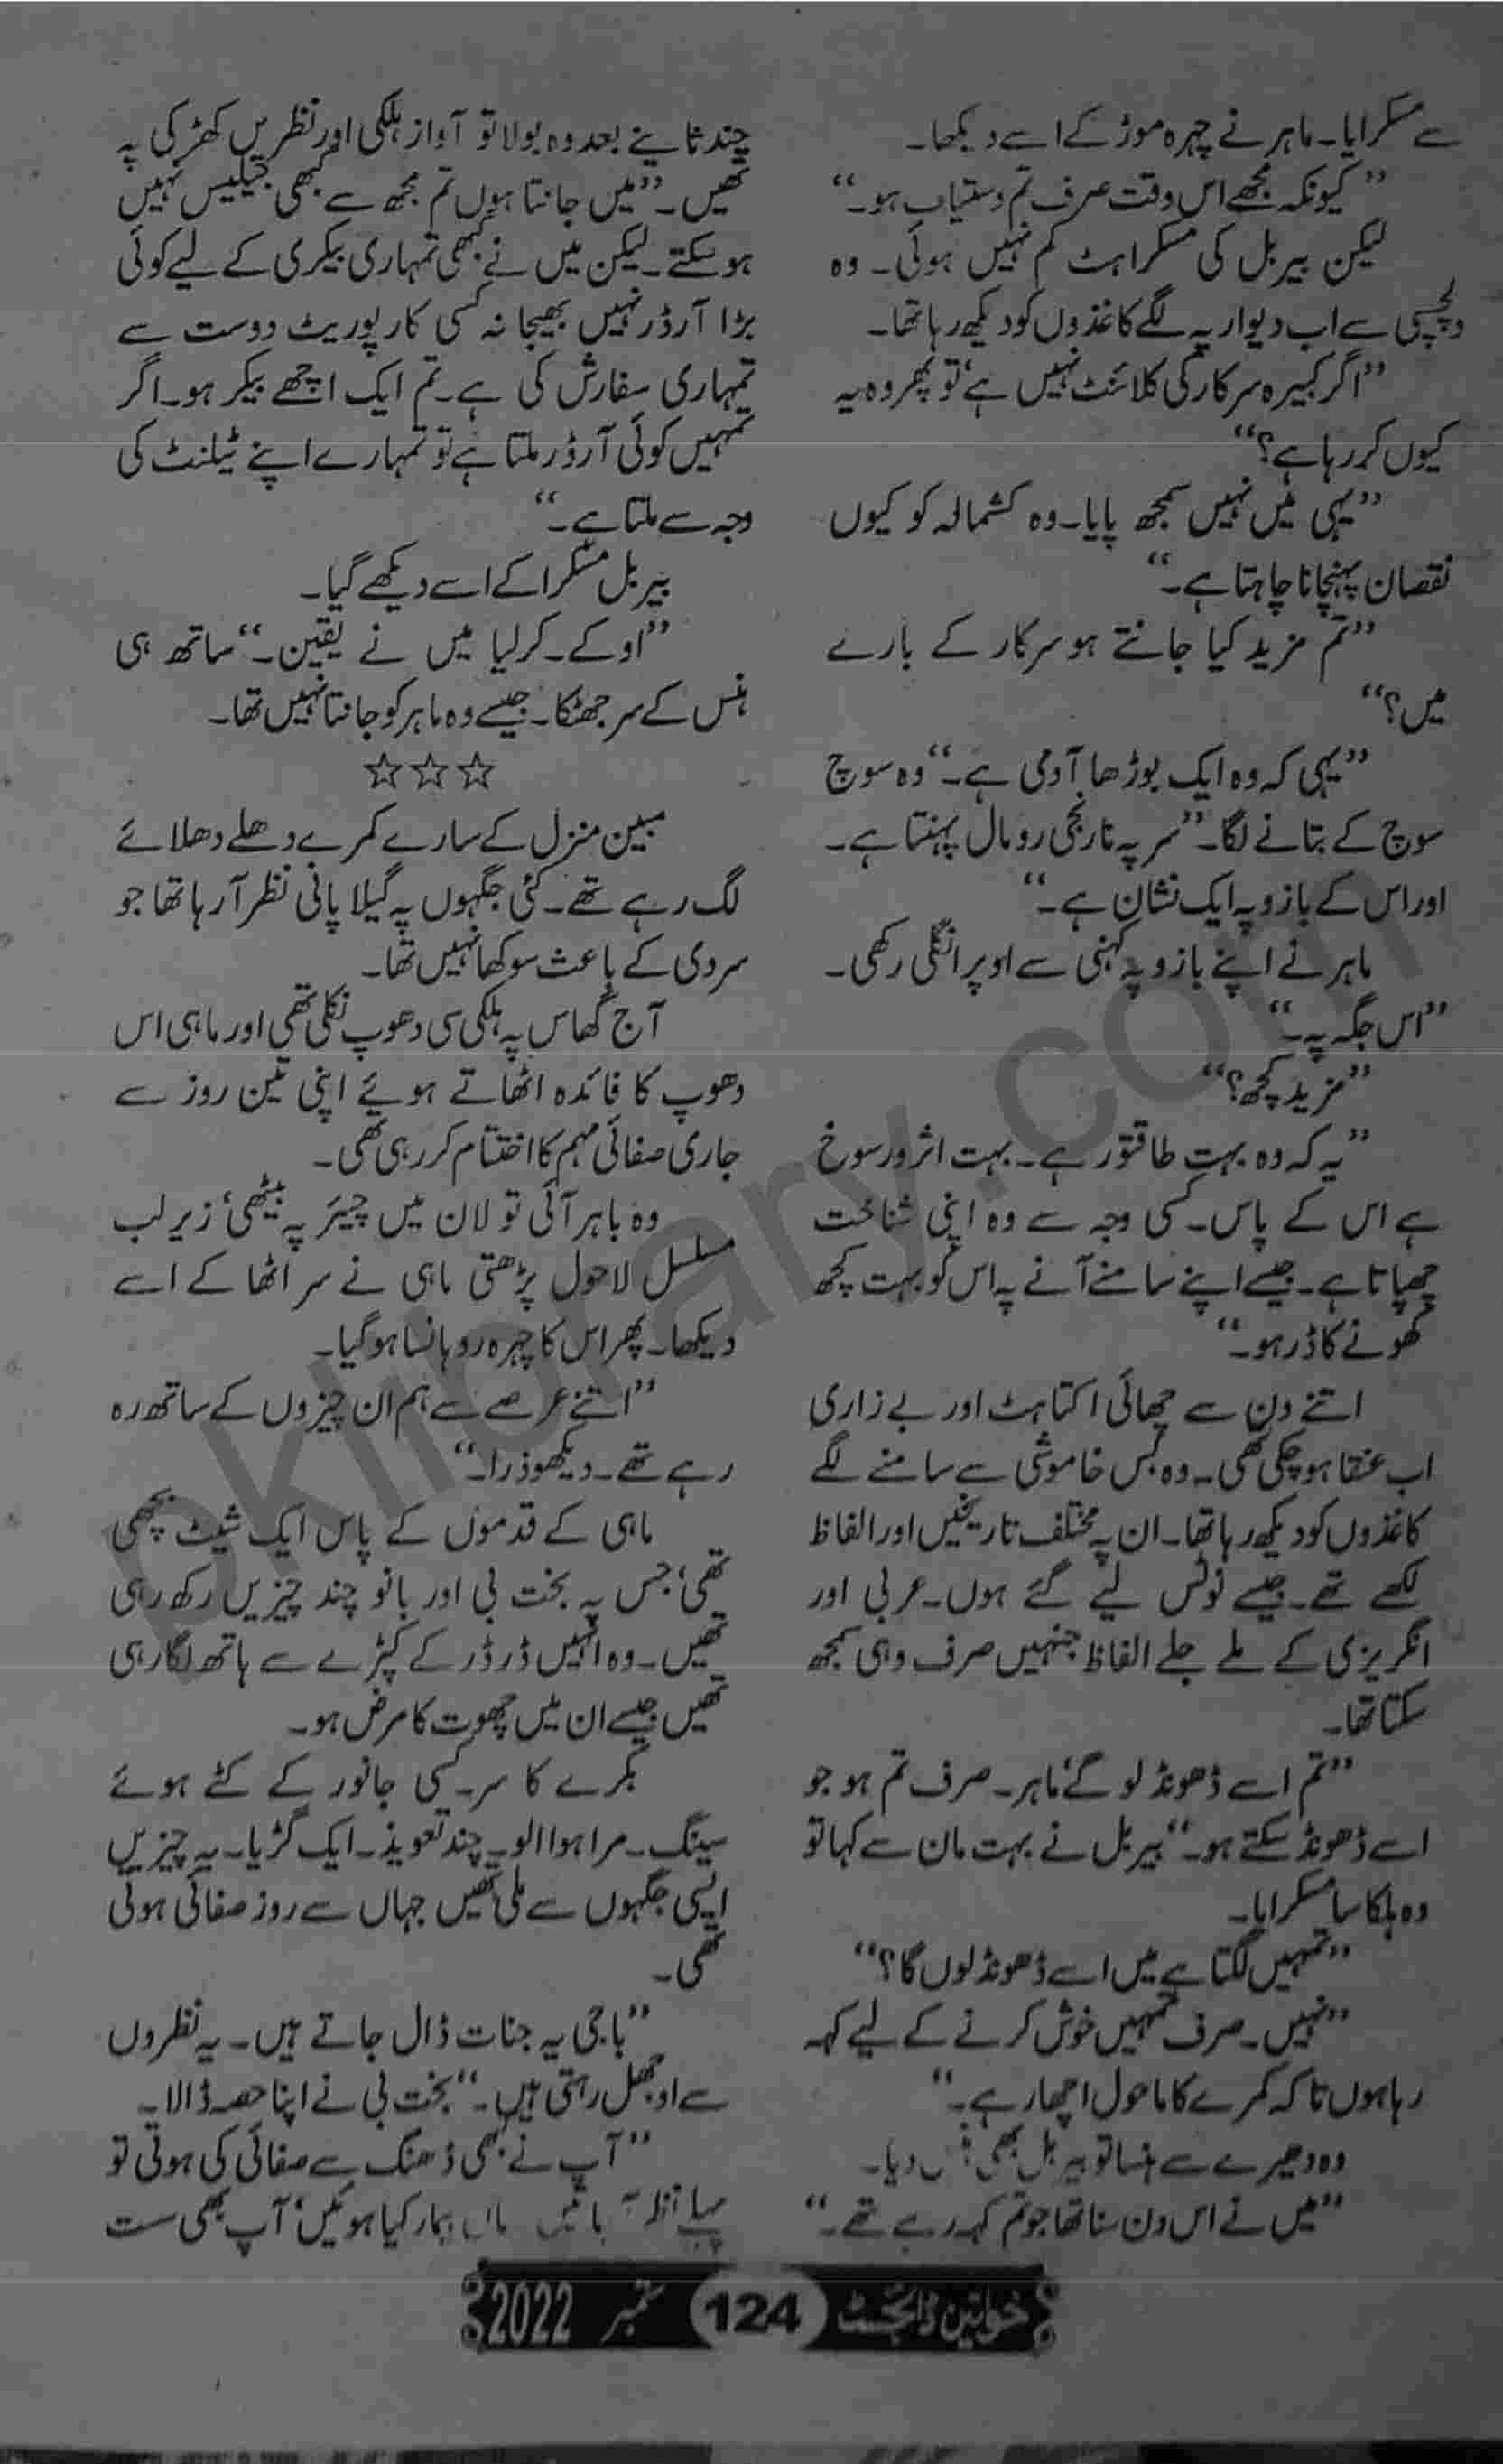 سے مسکرایا۔ ماہر نے چہرہ موڑ کے اسے دیکھا۔
”کیونکہ مجھے اس وقت صرف تم دستیاب ہو۔“
لیکن بیربل کی مسکراہٹ کم نہیں ہوئی۔ وہ
دلچسپی سے اب دیوار پہ لگے کاغذوں کو دیکھ رہا تھا۔
”اگر کبیرہ سرکار کی کلائنٹ نہیں ہے، تو پھر وہ یہ
کیوں کر رہا ہے؟“
”یہی میں نہیں سمجھ پایا۔ وہ کشمالہ کو کیوں
نقصان پہنچانا چاہتا ہے۔“
”تم مزید کیا جانتے ہو سرکار کے بارے
میں؟“
”یہی کہ وہ ایک بوڑھا آدمی ہے۔“ وہ سوچ
سوچ کے بتانے لگا۔ ”سر پہ نارنجی رومال پہنتا ہے۔
اور اس کے بازو پہ ایک نشان ہے۔“
ماہر نے اپنے بازو پہ کہنی سے اوپر انگلی رکھی۔
”اس جگہ پہ۔“
”مزید کچھ؟“
”یہ کہ وہ بہت طاقتور ہے۔ بہت اثر و رسوخ
ہے اس کے پاس۔ کسی وجہ سے وہ اپنی شناخت
چھپاتا ہے۔ جیسے اپنے سامنے آنے پہ اس کو بہت کچھ
کھونے کا ڈر ہو۔“
اتنے دن سے چھائی اکتاہٹ اور بے زاری
اب عنقا ہو چکی تھی۔ وہ بس خاموشی سے سامنے لگے
کاغذوں کو دیکھ رہا تھا۔ ان پہ مختلف تاریخیں اور الفاظ
لکھے تھے۔ جیسے نوٹس لیے گئے ہوں۔ عربی اور
انگریزی کے ملے جلے الفاظ جنہیں صرف وہی سمجھ
سکتا تھا۔
”تم اسے ڈھونڈ لو گے، ماہر۔ صرف تم ہو جو
اسے ڈھونڈ سکتے ہو۔“ بیربل نے بہت مان سے کہا تو
وہ ہلکا سا مسکرایا۔
”تمہیں لگتا ہے میں اسے ڈھونڈ لوں گا؟“
”نہیں۔ صرف تمہیں خوش کرنے کے لیے کہہ
رہا ہوں تاکہ کمرے کا ماحول اچھا رہے۔“
وہ دھیرے سے ہنسا تو بیربل بھی ہنس دیا۔
”میں نے اس دن سنا تھا جو تم کہہ رہے تھے۔“
چند ثانیے بعد وہ بولا تو آواز ہلکی اور نظریں کھڑکی پہ
تھیں۔ ”میں جانتا ہوں تم مجھ سے کبھی جیلیس نہیں
ہو سکتے۔ لیکن میں نے کبھی تمہاری بیکری کے لیے کوئی
بڑا آرڈر نہیں بھیجا نہ کسی کارپوریٹ دوست سے
تمہاری سفارش کی ہے۔ تم ایک اچھے بیکر ہو۔ اگر
تمہیں کوئی آرڈر ملتا ہے تو تمہارے اپنے ٹیلنٹ کی
وجہ سے ملتا ہے۔“
بیربل مسکرا کے اسے دیکھے گیا۔
”اوکے۔ کر لیا میں نے یقین۔“ ساتھ ہی
ہنس کے سر جھٹکا۔ جیسے وہ ماہر کو جانتا نہیں تھا۔
☆☆☆
مبین منزل کے سارے کمرے دھلے دھلائے
لگ رہے تھے۔ کئی جگہوں پہ گیلا پانی نظر آ رہا تھا جو
سردی کے باعث سوکھا نہیں تھا۔
آج گھاس پہ ہلکی سی دھوپ نکلی تھی اور ماہی اس
دھوپ کا فائدہ اٹھاتے ہوئے اپنی تین روز سے
جاری صفائی مہم کا اختتام کر رہی تھی۔
وہ باہر آئی تو لان میں چیئر پہ بیٹھی، زیر لب
مسلسل لاحول پڑھتی ماہی نے سر اٹھا کے اسے
دیکھا۔ پھر اس کا چہرہ روہانسا ہو گیا۔
”اتنے عرصے سے ہم ان چیزوں کے ساتھ رہ
رہے تھے۔ دیکھو ذرا۔“
ماہی کے قدموں کے پاس ایک شیٹ بچھی
تھی، جس پہ بخت بی اور بانو چند چیزیں رکھ رہی
تھیں۔ وہ انہیں ڈر ڈر کے کپڑے سے ہاتھ لگا رہی
تھیں جیسے ان میں چھوت کا مرض ہو۔
بکرے کا سر۔ کسی جانور کے کٹے ہوئے
سینگ۔ مرا ہوا الو۔ چند تعویذ۔ ایک گڑیا۔ یہ چیزیں
ایسی جگہوں سے ملی تھیں جہاں سے روز صفائی ہوتی
تھی۔
”باجی یہ جنات ڈال جاتے ہیں۔ یہ نظروں
سے اوجھل رہتی ہیں۔“ بخت بی نے اپنا حصہ ڈالا۔
”آپ نے بھی ڈھنگ سے صفائی کی ہوتی تو
پہلے نظر ماں بیمار کیا ہوئیں، آپ بھی ست
خواتین ڈائجسٹ 124 ستمبر 2022
pklibrary.com